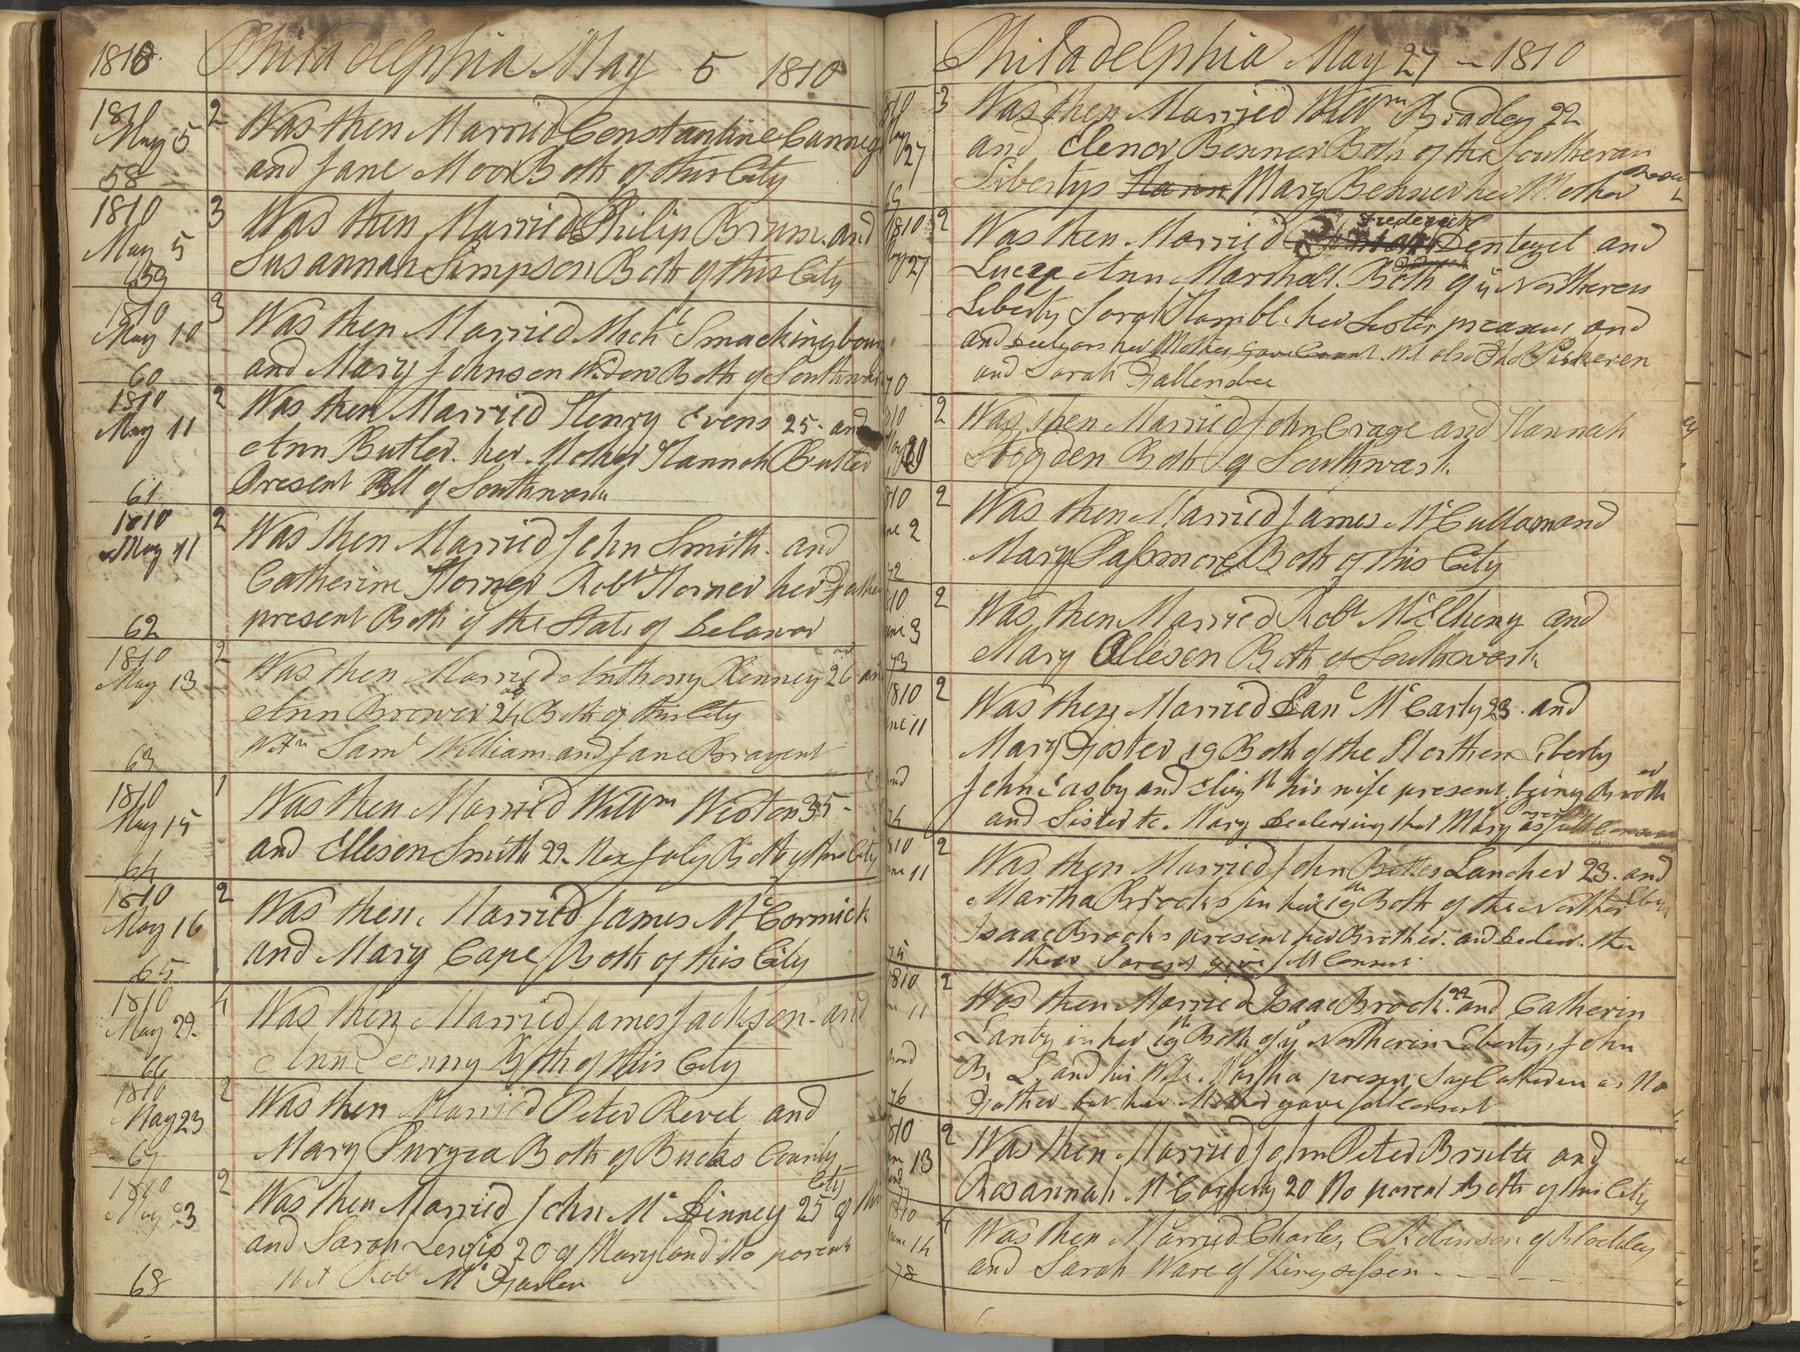 1810 Philadelphia May 5 1810
1810 2 Was then Married Constantine
May 5 and Jane Moor Both of this City
58
1810 3 Was then Married Philip Brum and
May 5 Susannah Simpson Both of this City
59
1810 3 Was then Married Mich.l Smackingbour
May 10 and Mary Johnson Widow Both of Southwar
60
1810 2 Was then Married Henry Evens 25 and
May 11 Ann Butler her Mother Hannah Butler
61 Present All of Southwark
1810 2 Was then Married John Smith and
May 11 Catherine Horner Robt Horner her Father
62 present Both of the State of Delawar
1810 2 Was then Married Anthony Kenney 26 an
May 13 Ann Brewer 24 Both of this City
63 Wit.n Sam.l William and Jane Bragent
1810 1 Was then Married Will.m Weston 35
May 15 and Elleson Smith 22 Both of this City
64
1810 2 Was then Married James McCormick
May 16 and Mary Cape Both of this City
65
1810 4 Was then Married James Jackson and
May 22 Ann Both of this City
66
1810 2 Was then Married Peter Revel and
May 23 Mary Both of Bucks County
67
1810 2 Was then Married John McKinney 25 of this City
May 23 and Sarah Lewis 20 of Maryland No parents
68 Wit Robt
Philadelphia May 27 - 1810
3 Was then Married Will.m Bradley 22
27 and Elenor Benner Both of the Southeran
Libertys Mary Benner her Mother
1810 2 Was then Married Frederick Dentzel and
27 Ann Marshall Both of y Northeren
Liberty Sarah her Sister present and
and her Mother gave Consent Wit also
70 and Sarah Hallender
10 2 Was then Married John Crage and Hannah
Both of Southwark
10 2 Was then Married James McCullom and
2 Mary Passmore Both of this City
72
10 2 Was then Married Robt McElheny and
3 Mary Olleson Both of Southwark
73
1810 2 Was then Married Dan.l McCarty 23 and
11 Mary Foster 19 Both of the Northern Liberty
John Easby and Eliz.th his wife present being Broth
74 and Sister to Mary Declearing that Mary
810 2 Was then Married John Lancher 23 and
11 Martha Brocks in her 19th Both of the Northern Liberty
Isaac Brocks present her Brother and Declear the
75 gives full Consent
1810 2 Was then Married Isaac Brock 22 and Catherin
11 Lanby in her 19th Both of y Northerin Liberty John
B. L and his Wife Martha present Say Catheren as No
76 Father but her Mother gave full Consent
810 2 Was then Married John Peter Brulte and
13 Rosannah 20 No parent Both of this City
1810 4 Was then Married Charles C Robinson of Blockley
June 14 and Sarah Ware of Kingsessen
78